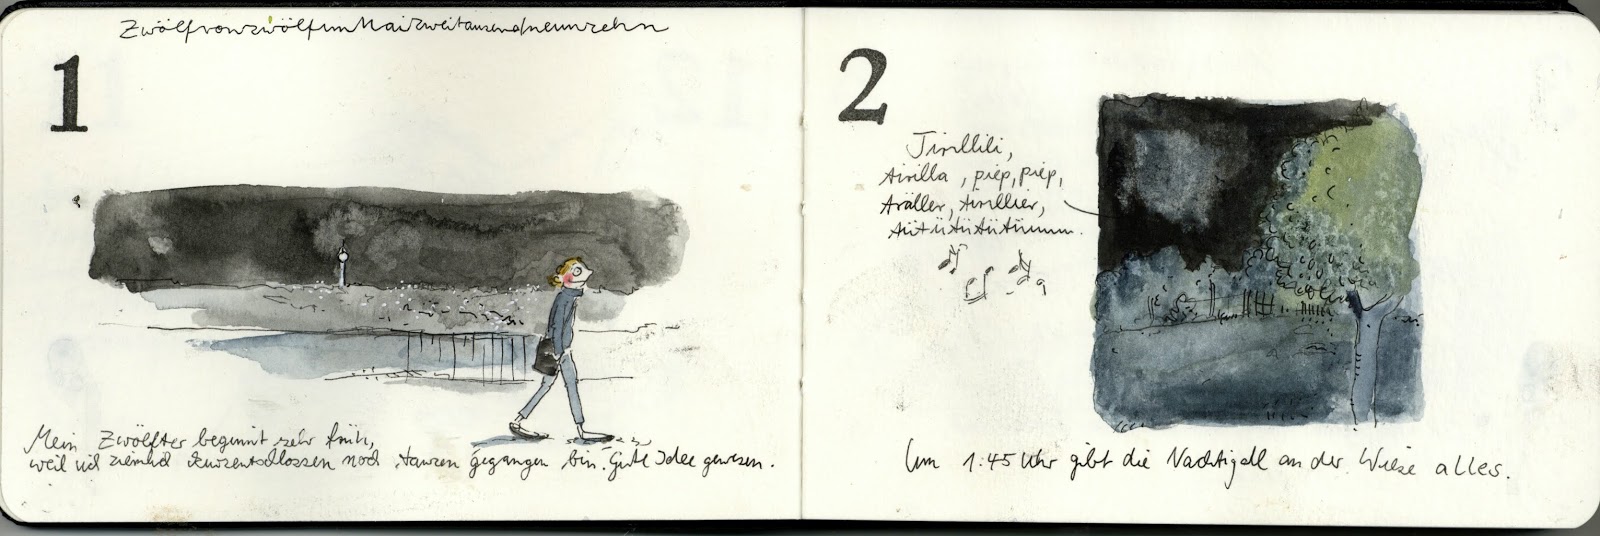 ZwölfvonzwölfimMaizweitausendneunzehn
1
Mein Zwölfter beginnt sehr früh,
weil ich ziemlich kurzentschlossen noch tanzen gegangen bin. Gute Idee gewesen.
2
Tirillili,
tirilla, piep, piep,
träller, tirillier,
tütütütütütümm.
Um 1:45 Uhr gibt die Nachtigall an der Wiese alles.